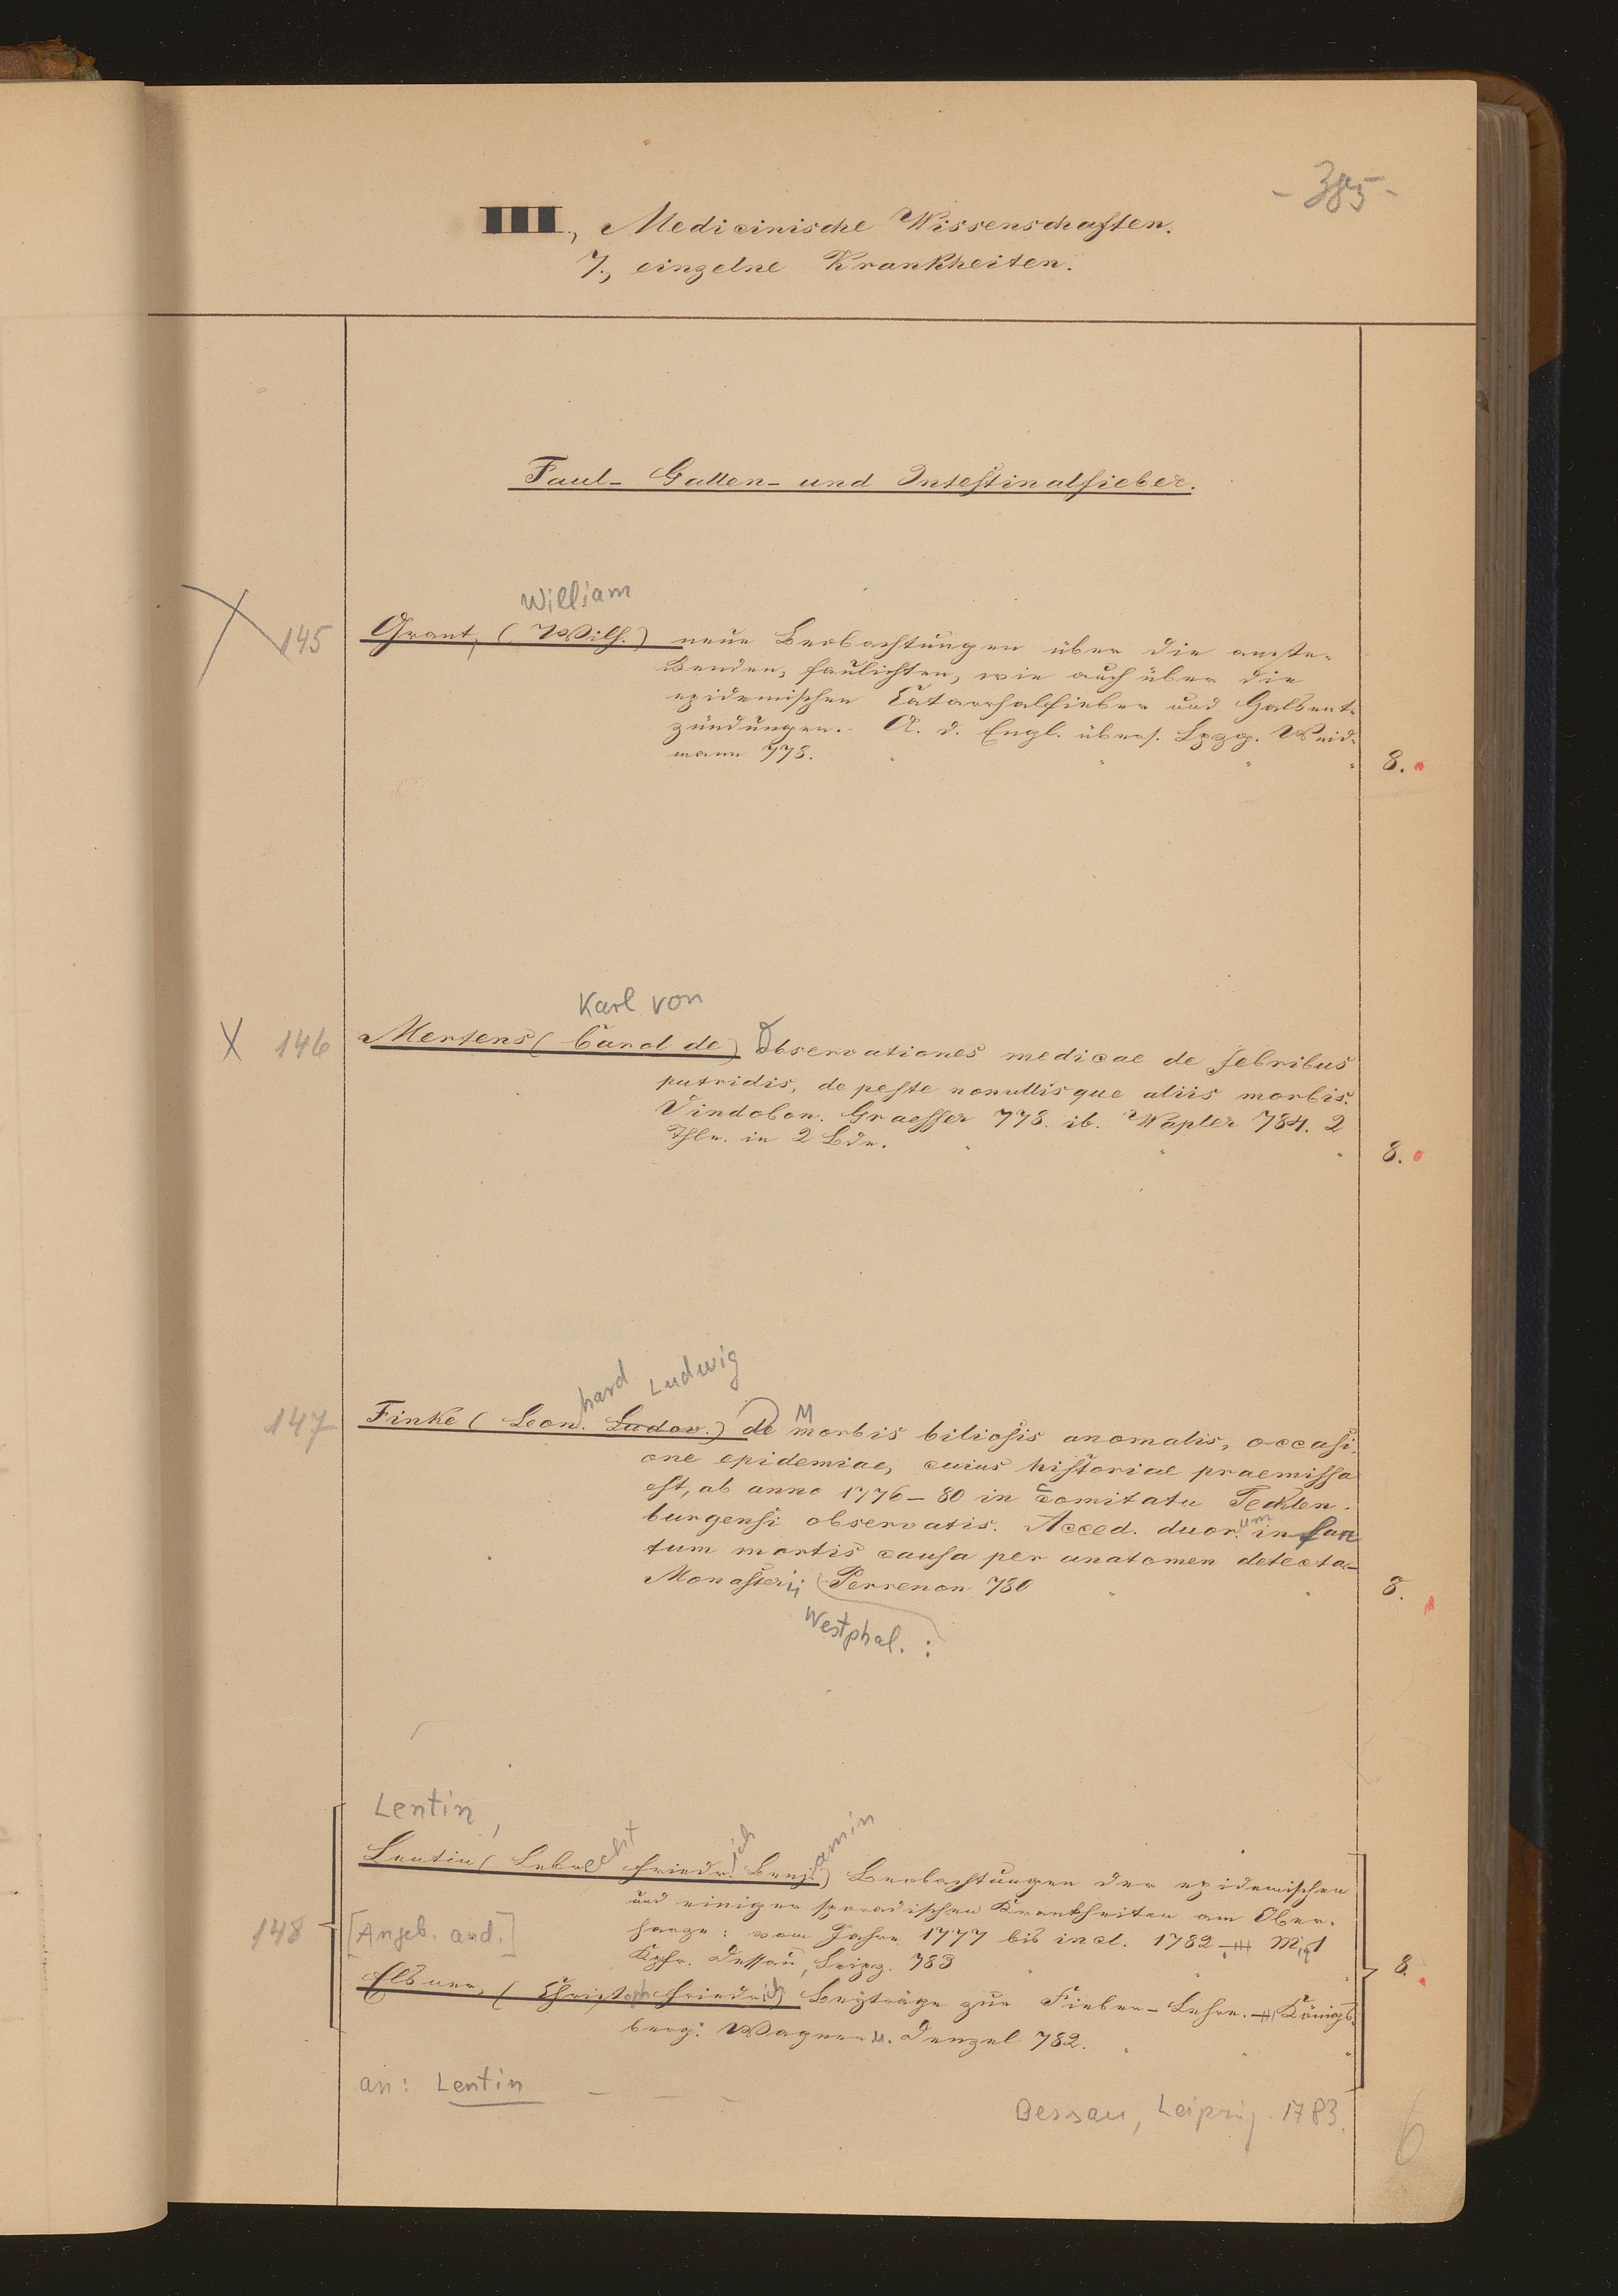 - 385 -
III., Medicinische Wissenschaften.
7., einzelne Krankheiten.
Faul- Gallen- und Intestinalfieber.
William
X 145 Grant, (Wilh.) neue Beobachtungen über die anste-
kenden, faulichten, wie auch über die
epidemischen Catarrhalfieber und Halsent-
zündungen. A. d. Engl. übers. Lpzg. Weid-
mann 778. 8.
Karl von
X 146 Mertens (Carol de) Observationes medicae de febribus
putridis, de peste nonullisque aliis morbis.
Vindobon. Graeffer 778. ib. Wapler 784. 2
Thle. in 2 Bdn. 8.
hard Ludwig
147 Finke (Leon. Ludov.) de Morbis biliosis anomalis, occasi-
one epidemiae, cuius historiae praemissa
est, ab anno 1776-80 in Comitatu Tecklen-
burgensi observatis. Acced. duor.um infan
tum mortis causa per anatomen detecta.
Monasterii Perrenon 780 8.
Westphal. :
Lentin,
Lentin (Lebrecht Friedr.ich Benj.amin) Beobachtungen der epidemischen
und einiger sporadischen Krankheiten am Ober-
148 [Angeb. and.] harze: vom Jahre 1777 bis incl. 1782. M. 1
Kpfr. Dessau, Leipz. 783 8.
Elsner, (Christoph Friedrich) Beyträge zur Fieber-Lehre. Königs-
berg: Wagner u. Denzel 782.
an: Lentin - - - Dessau, Leipzig. 1783.
6